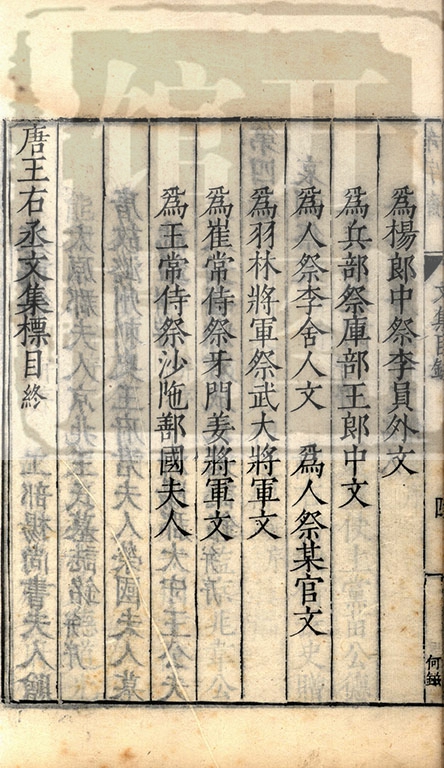 爲楊郎中祭李員外文
爲兵部祭庫部王郎中文
爲人祭李舍人文　爲人祭某官文
爲羽林將軍祭武大將軍文
爲崔常侍祭牙門姜將軍文
爲王常侍祭沙陁鄯國夫人
唐王右丞文集標目終